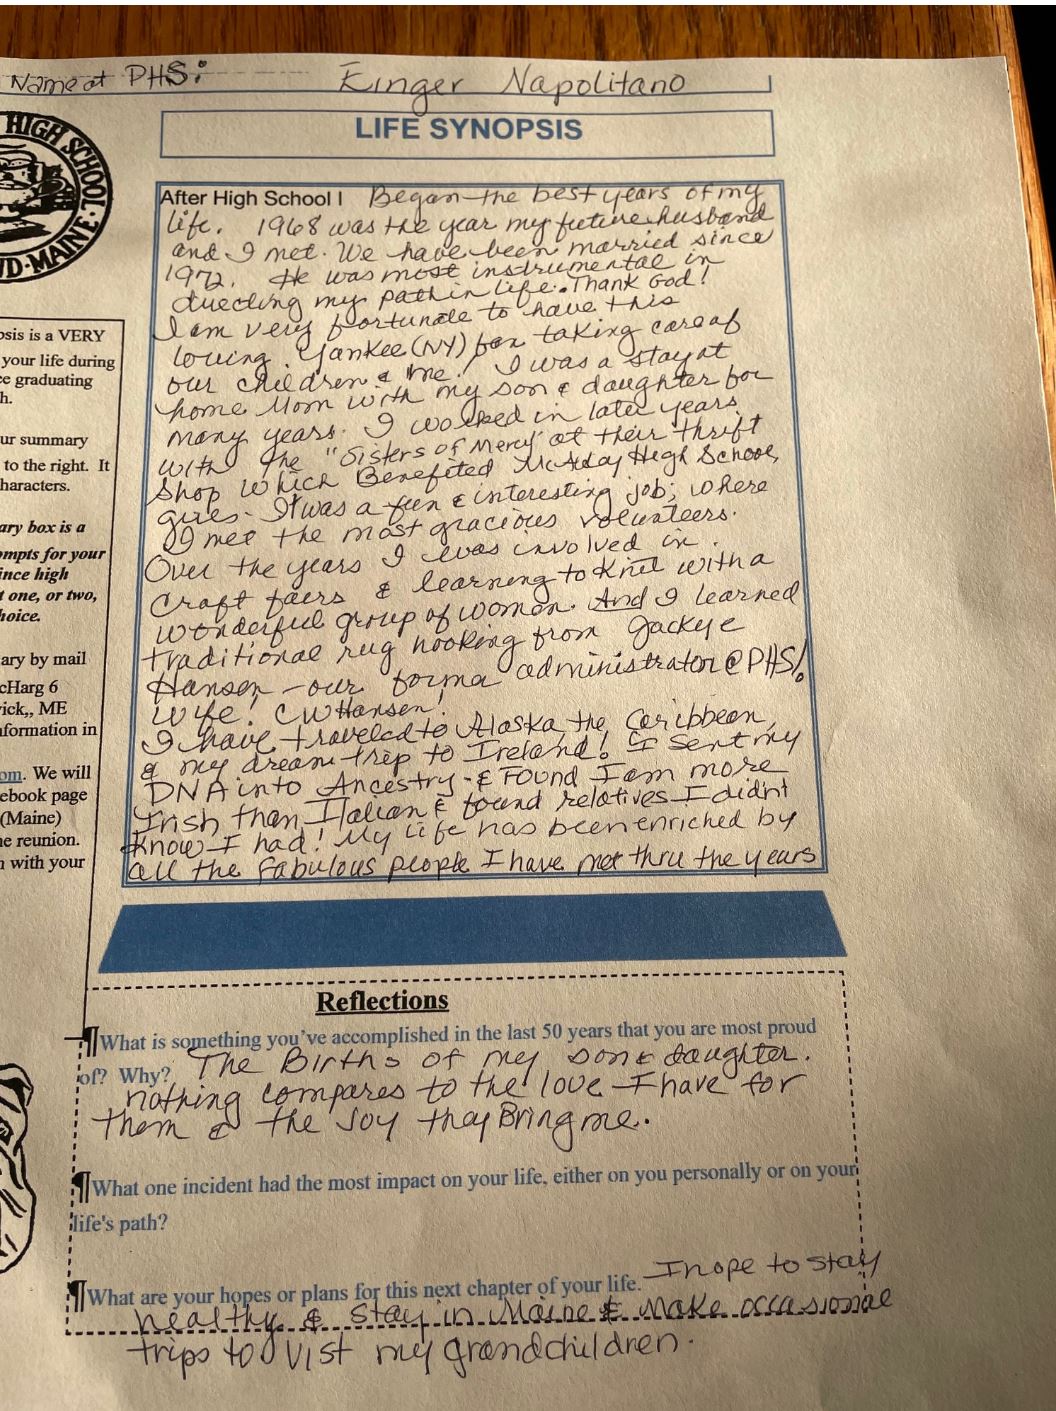 Name at PHS: Ginger Napolitano
HIGH SCHOOL
D-MAINE
LIFE SYNOPSIS
After High School I Began the best years of my
life. 1968 was the year my future husband
and I met. We have been married since
1972. He was most instrumental in
directing my path in life. Thank God!
I am very fortunate to have this
loving Yankee (NY) fan taking care of
our children & me! I was a stay at
home Mom with my son & daughter for
many years. I worked in later years
with the "Sisters of Mercy" at their thrift
shop which Benefited McAuley High School,
girls. It was a fun & interesting job; where
I met the most gracious volunteers.
Over the years I was involved in
craft fairs & learning to Knit with a
wonderful group of women. And I learned
traditional rug hooking from Jackye
Hansen - our former administrator @ PHS!
wife! CW Hansen!
I have traveled to Alaska, the Caribbean,
& my dream trip to Ireland! I sent my
DNA into Ancestry - & Found I am more
Irish than Italian & found relatives I didn't
Know I had! My Life has been enriched by
all the fabulous people I have met thru the years
psis is a VERY
your life during
e graduating
h.
ur summary
to the right. It
haracters.
ary box is a
mpts for your
ince high
t one, or two,
hoice.
ary by mail
cHarg 6
ick,, ME
formation in
om. We will
ebook page
(Maine)
e reunion.
n with your
Reflections
¶What is something you've accomplished in the last 50 years that you are most proud
of? Why? The Births of my son & daughter.
nothing compares to the love I have for
them & the Joy they Bring me.
¶What one incident had the most impact on your life, either on you personally or on your
life's path?
¶What are your hopes or plans for this next chapter of your life. I hope to stay
healthy & stay in Maine & make occasional
trips to vist my grandchildren.